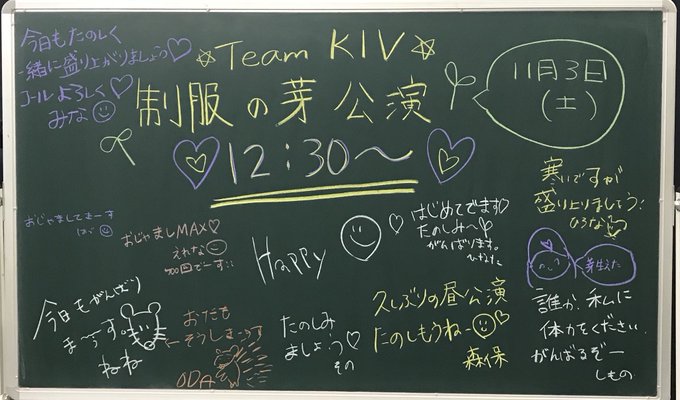 今日もたのしく
一緒に盛り上がりましょう♡
コールよろしく♡
みな
☆Team KIV☆
制服の芽公演
12:30〜
11月3日
(土)
寒いですが
盛り上りましょう!
ひろな
おじゃましてまーす
おじゃましMAX♡
えれな
700回でーす!!
Happy
はじめてでます♡
たのしみ〜♡
がんばります。
芽生えた
今日もがんばり
まーーす。
ねね
おだも
←そうしまーーす
ODA
たのしみ
ましょう♡
その
久しぶりの昼公演
たのしもうねー
森保
誰か、私に
体力をください。
がんばるぞー
しもの